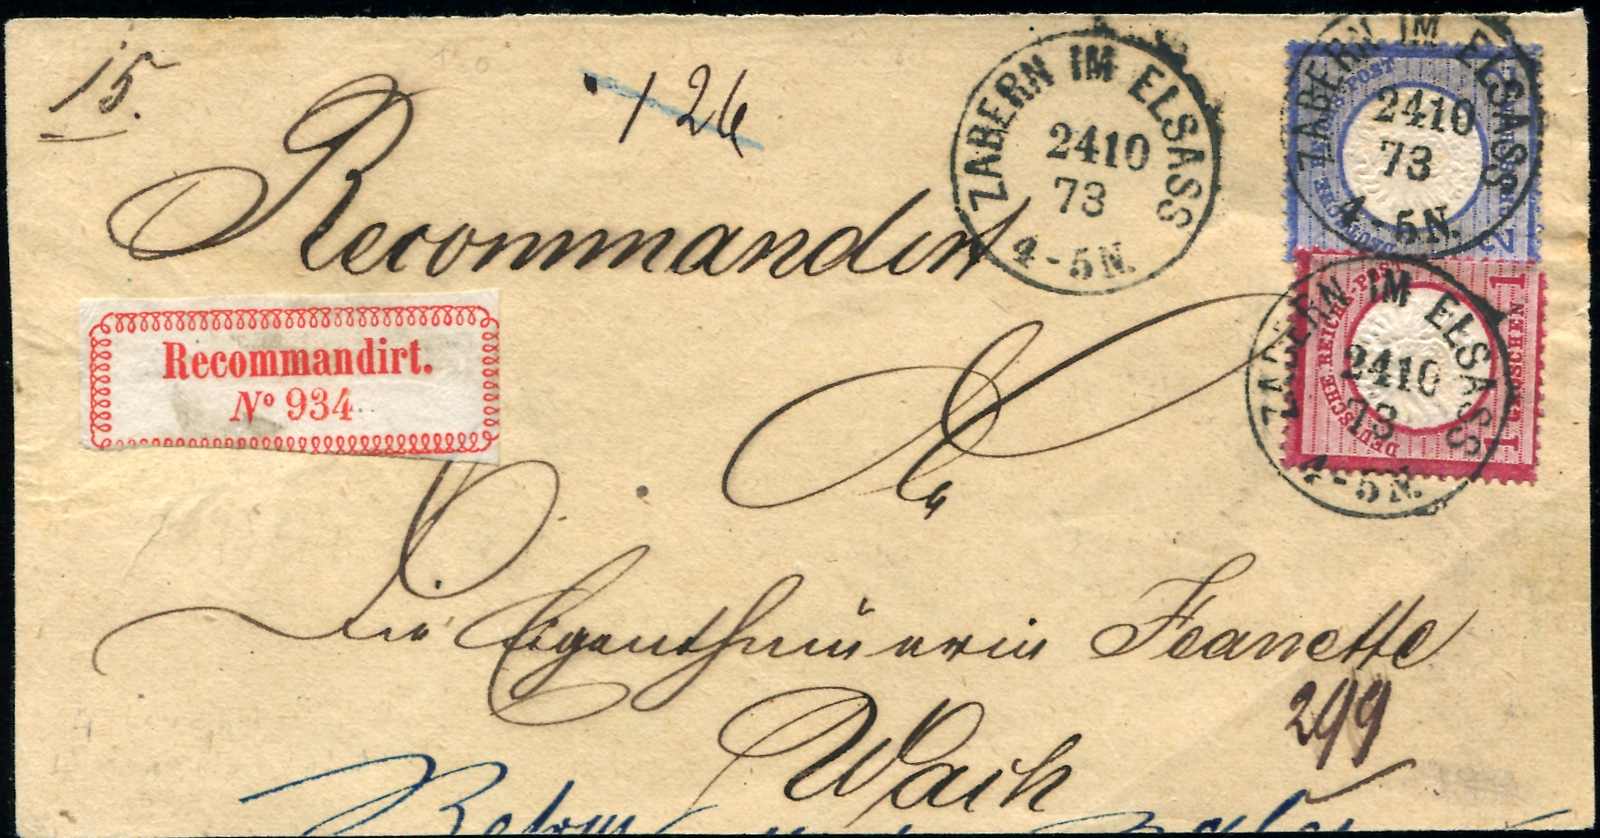 15.
126
Recommandirt
ZABERN IM ELSASS
2410
73
4-5N.
ZABERN IM ELSASS
2410
73
4-5N.
Recommandirt.
No 934
ZABERN IM ELSASS
2410
73
4-5N.
DEUTSCHE REICHS-POST
1 GROSCHEN 1
An
die Eigenthümerin Jeanette
299